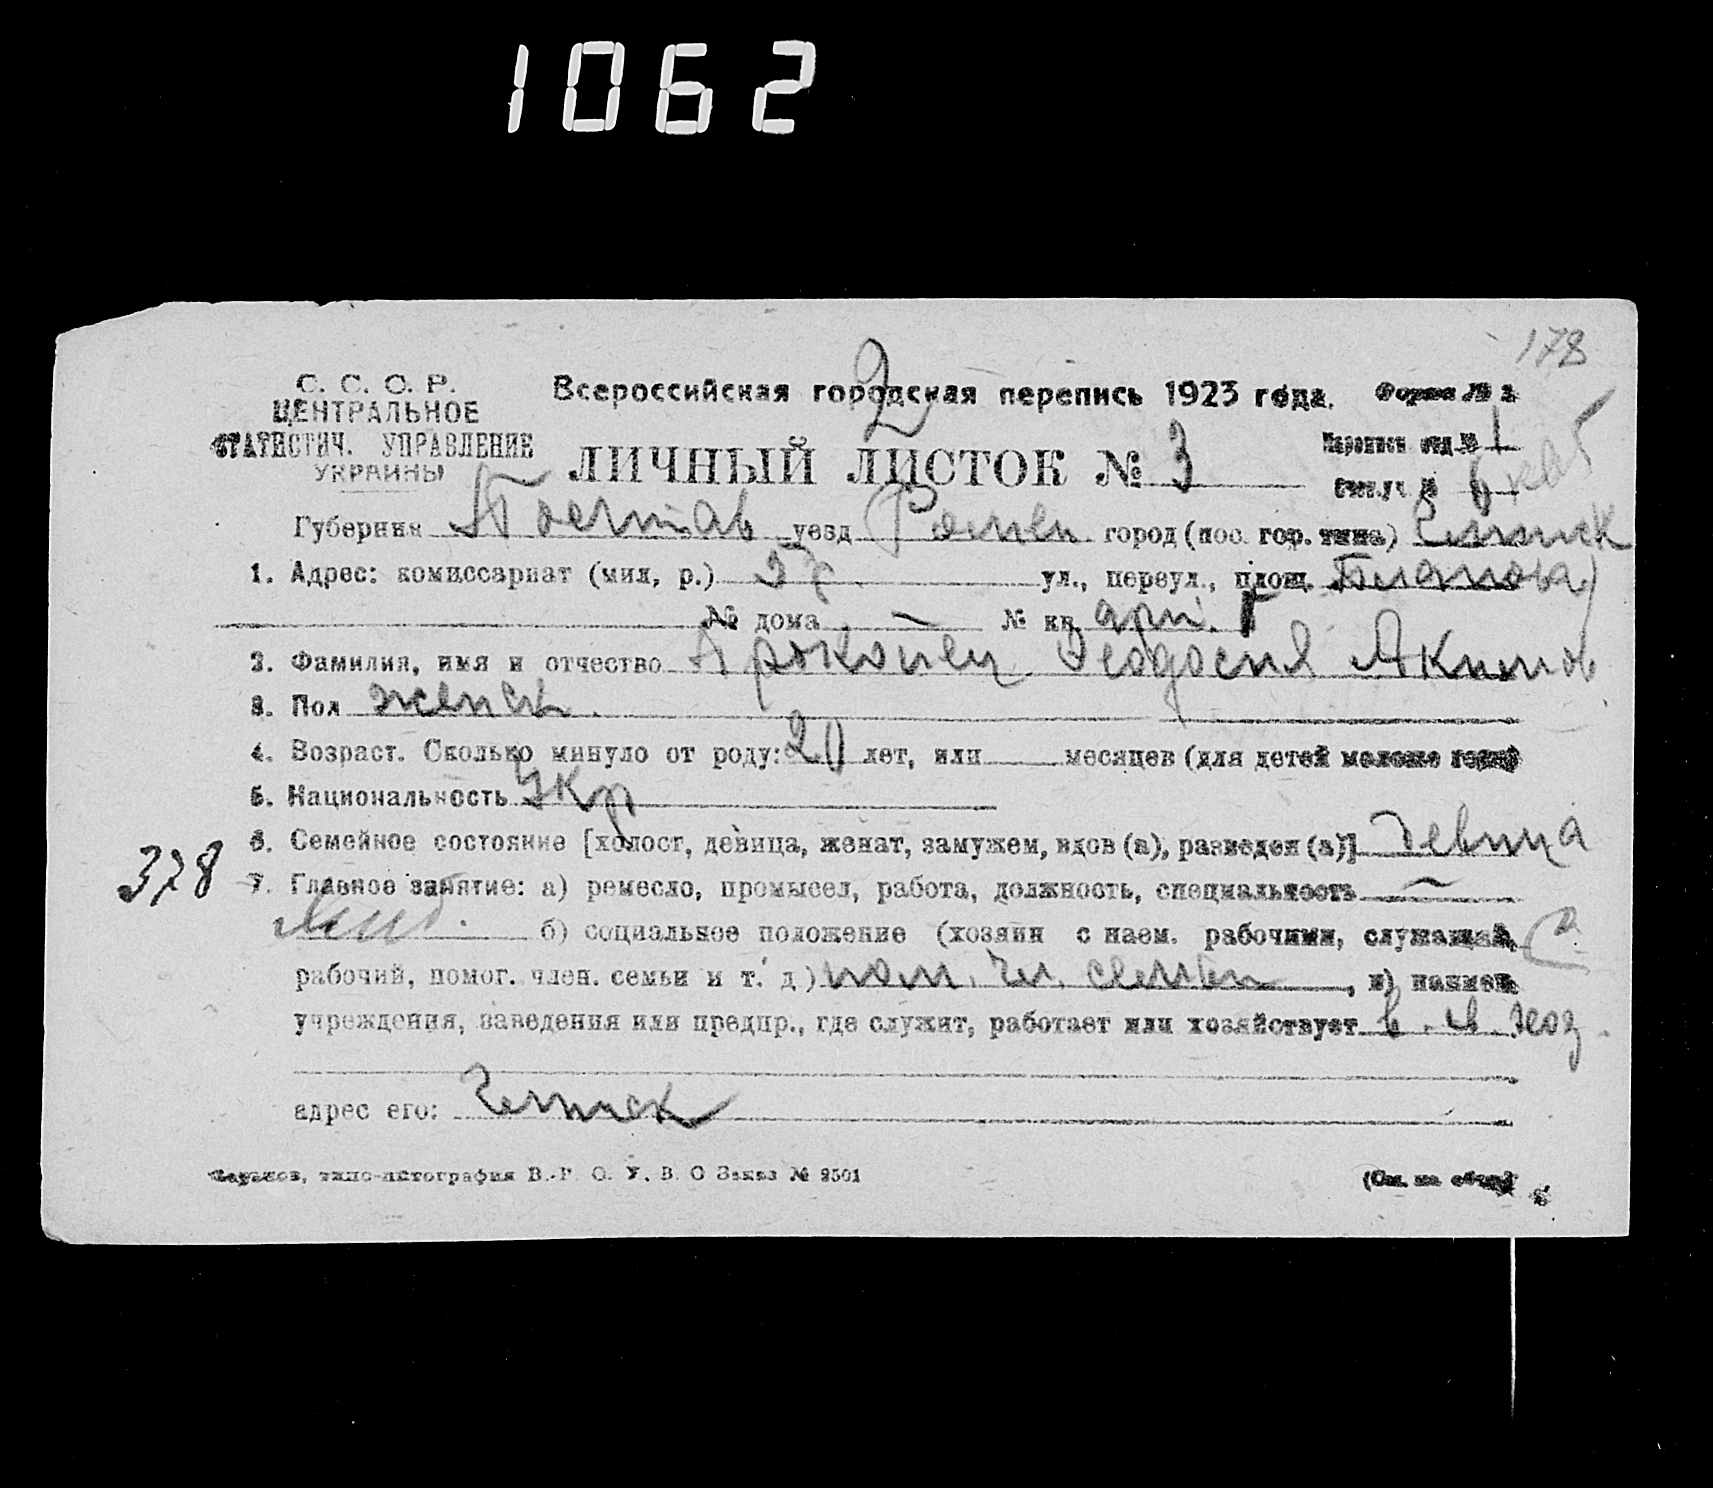 1062
178
С. С. С. Р.
ЦЕНТРАЛЬНОЕ
СТАТИСТИЧ. УПРАВЛЕНИЕ
УКРАИНЫ
Всероссийская городская перепись 1923 года. Форма № 2
2
ЛИЧНЫЙ ЛИСТОК № 3
Переписн. отд. № 1
Счетн. уч. № 6
Губерния Полтав уезд Ромен город (пос. гор. типа) Глинск
1. Адрес: комиссариат (мил, р.) ул., переул., площ.
№ дома — № кв.
2. Фамилия, имя и отчество Прокопец Феодосия Акимов
3. Пол женск.
4. Возраст. Сколько минуло от роду: 20 лет, или месяцев (для детей моложе года)
5. Национальность Укр
6. Семейное состояние [холост, девица, женат, замужем, вдов (а), разведен (а)] девица
378
7. Главное занятие: а) ремесло, промысел, работа, должность, специальность —
б) социальное положение (хозяин с наем. рабочими, служащий,
рабочий, помог. член. семьи и т. д) пом. чл. семьи, в) наимен.
учреждения, заведения или предпр., где служит, работает или хозяйствует в с. хоз.
адрес его: Глинск
Харьков, типо-литография В.-Р. О. У. В. О Заказ № 2501
(См. на обор.)